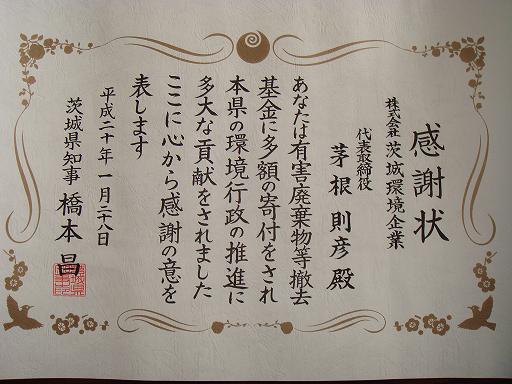 感謝状
株式会社 茨城環境企業
代表取締役
茅根則彦殿
あなたは有害廃棄物等撤去
基金に多額の寄付をされ
本県の環境行政の推進に
多大な貢献をされました
ここに心から感謝の意を
表します
平成二十年一月二十八日
茨城県知事 橋本昌